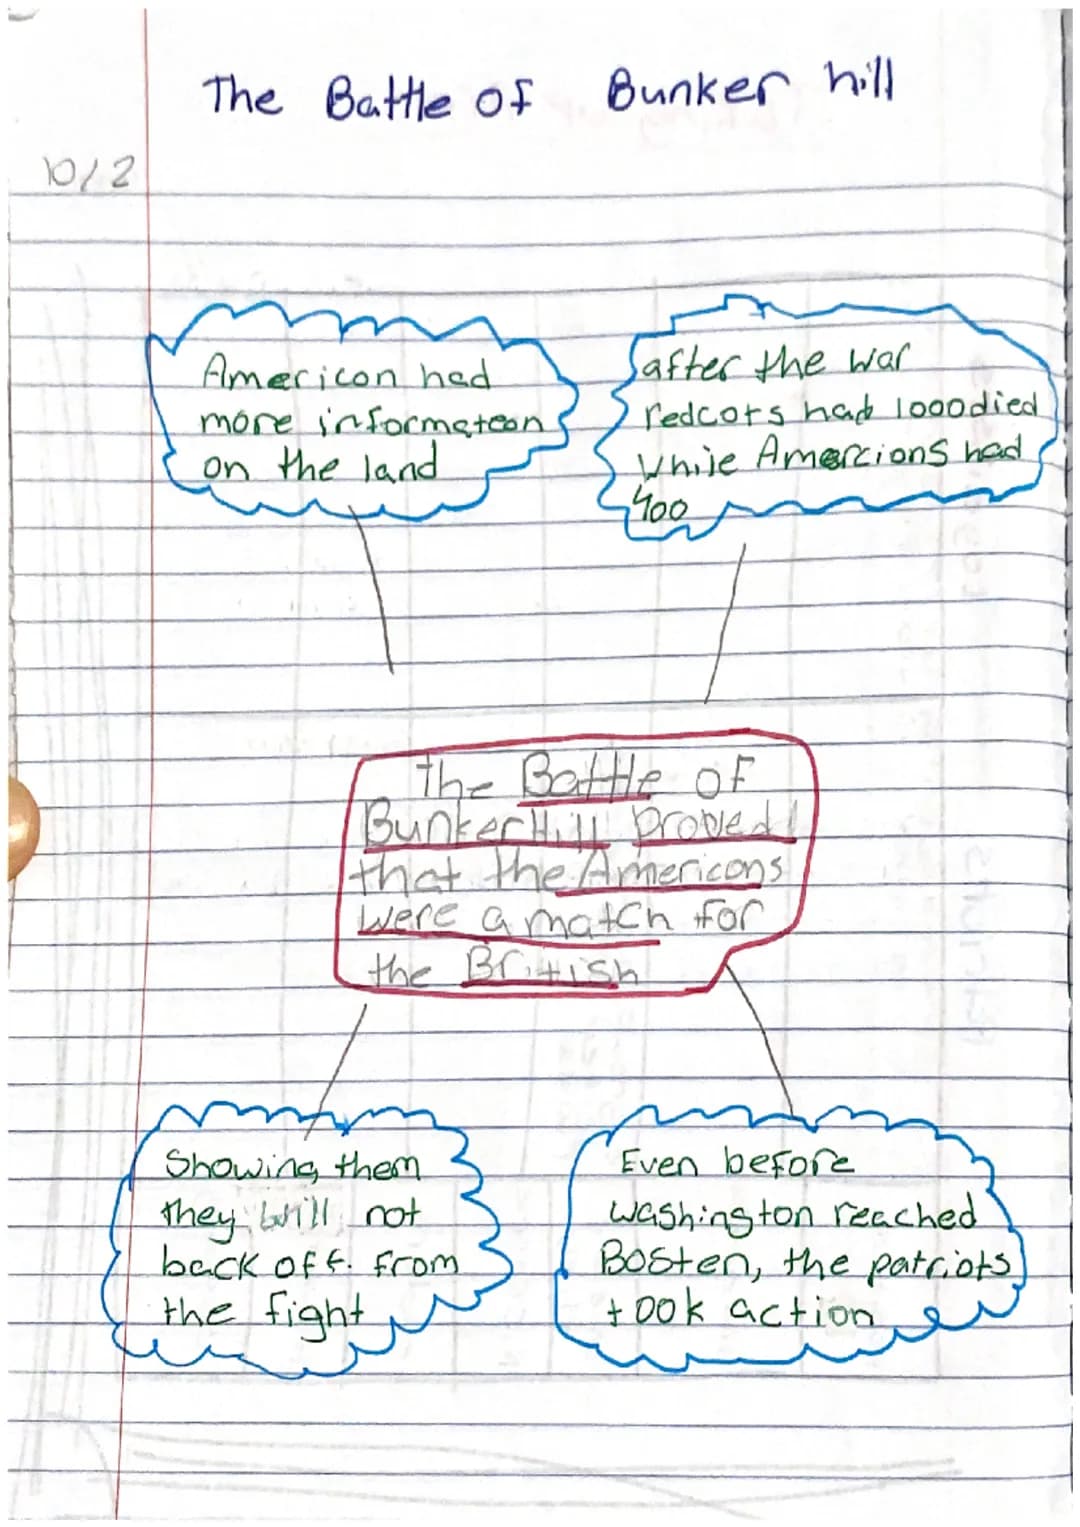 The Battle of Bunker hill
10/2
Americon had
more informateon
on the land
after the war
redcots had 1000 died
While Amercions had
400
The Battle of
Bunker Hill proved
that the Americons
were a match for
the British
Showing them
they will not
back off. from
the fight
Even before
washington reached
Bosten, the patriots
took action